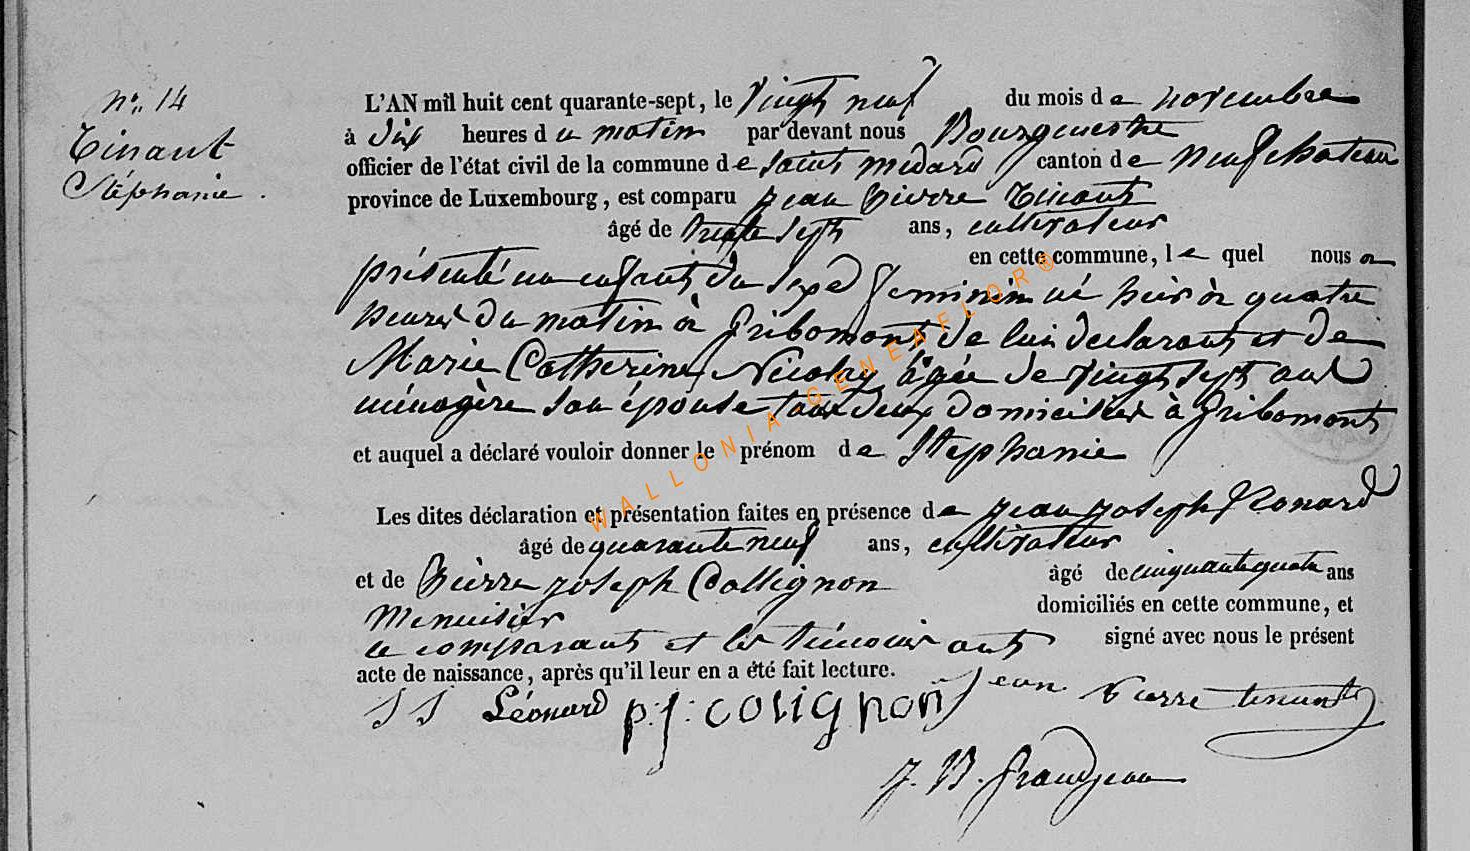 No. 14
Tinant
Stéphanie.
L'AN mil huit cent quarante-sept, le Vingt neuf du mois de novembre
à dix heures du matin par devant nous Bourgmestre
officier de l'état civil de la commune de saint médard canton de neufchateau
province de Luxembourg, est comparu jean pierre Tinant
âgé de trente sept ans, cultivateur
en cette commune, le quel nous a
présenté un enfant du sexe feminin né hier à quatre
heures du matin à Gribomont de lui déclarant et de
Marie Catherine Nicolay âgée de vingt sept ans
ménagère son épouse tous deux domiciliés à Gribomont
et auquel a déclaré vouloir donner le prénom de Stephanie
Les dites déclaration et présentation faites en présence de jean joseph Léonard
âgé de quarante neuf ans, cultivateur
et de Pierre joseph Collignon âgé de cinquante quatre ans
Menuisier domiciliés en cette commune, et
le comparant et les témoins ont signé avec nous le présent
acte de naissance, après qu'il leur en a été fait lecture.
J J Léonard p:j: colignon jean pierre tinant
J. B. Grandjean
WALLONIA GENEAFLOR®